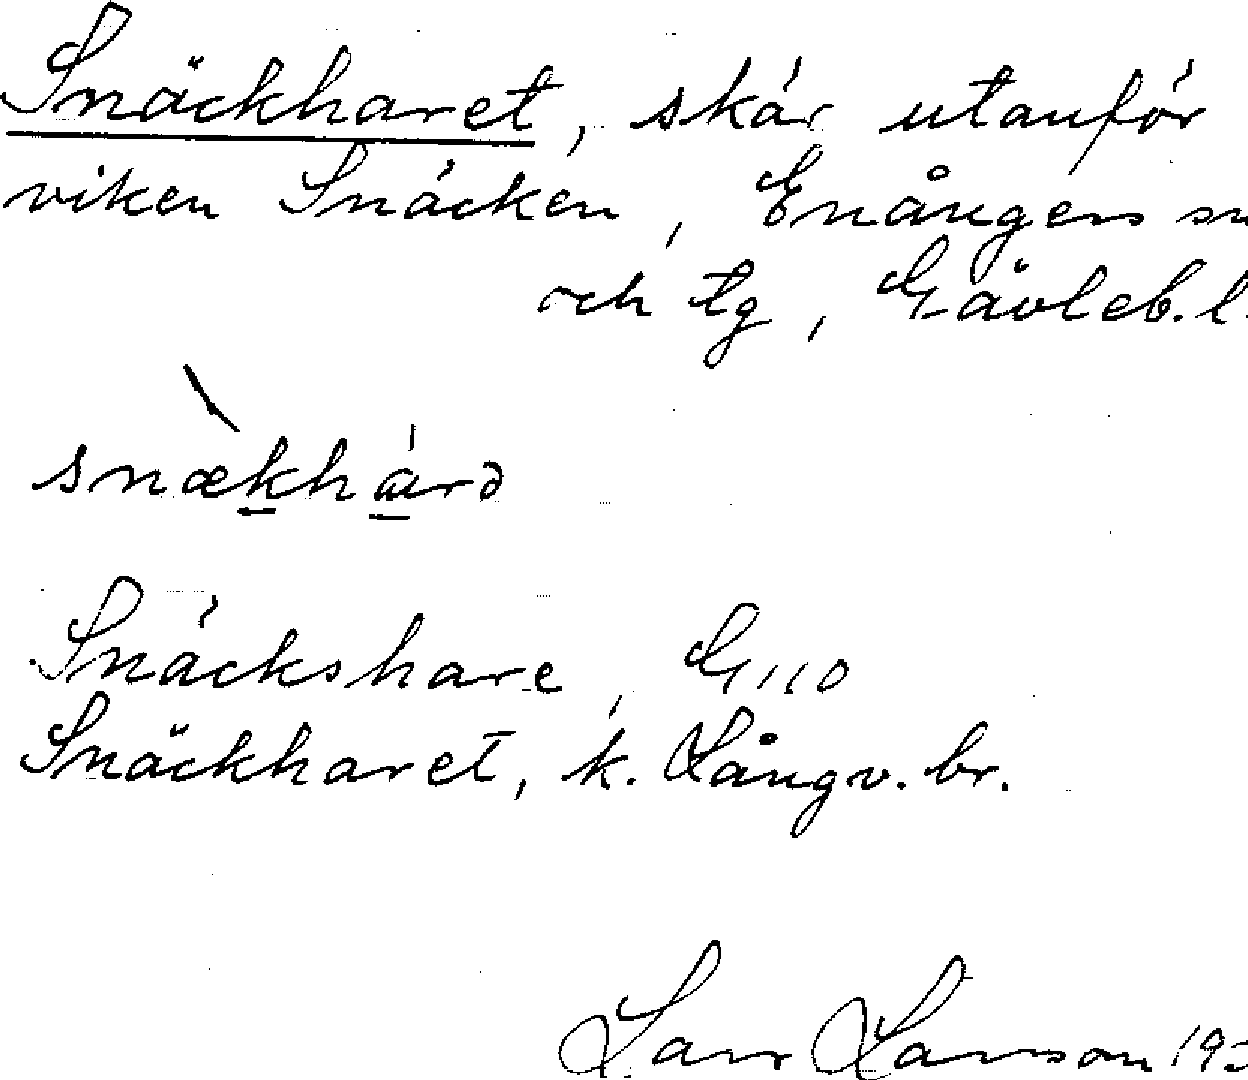 Snäckharet, skär utanför
viken Snäcken, Enångers sn
och tg, Gävleb. l.
snækharə
Snäckshare, G 110
Snäckharet, k. Långv. br.
Lars Larsson 19